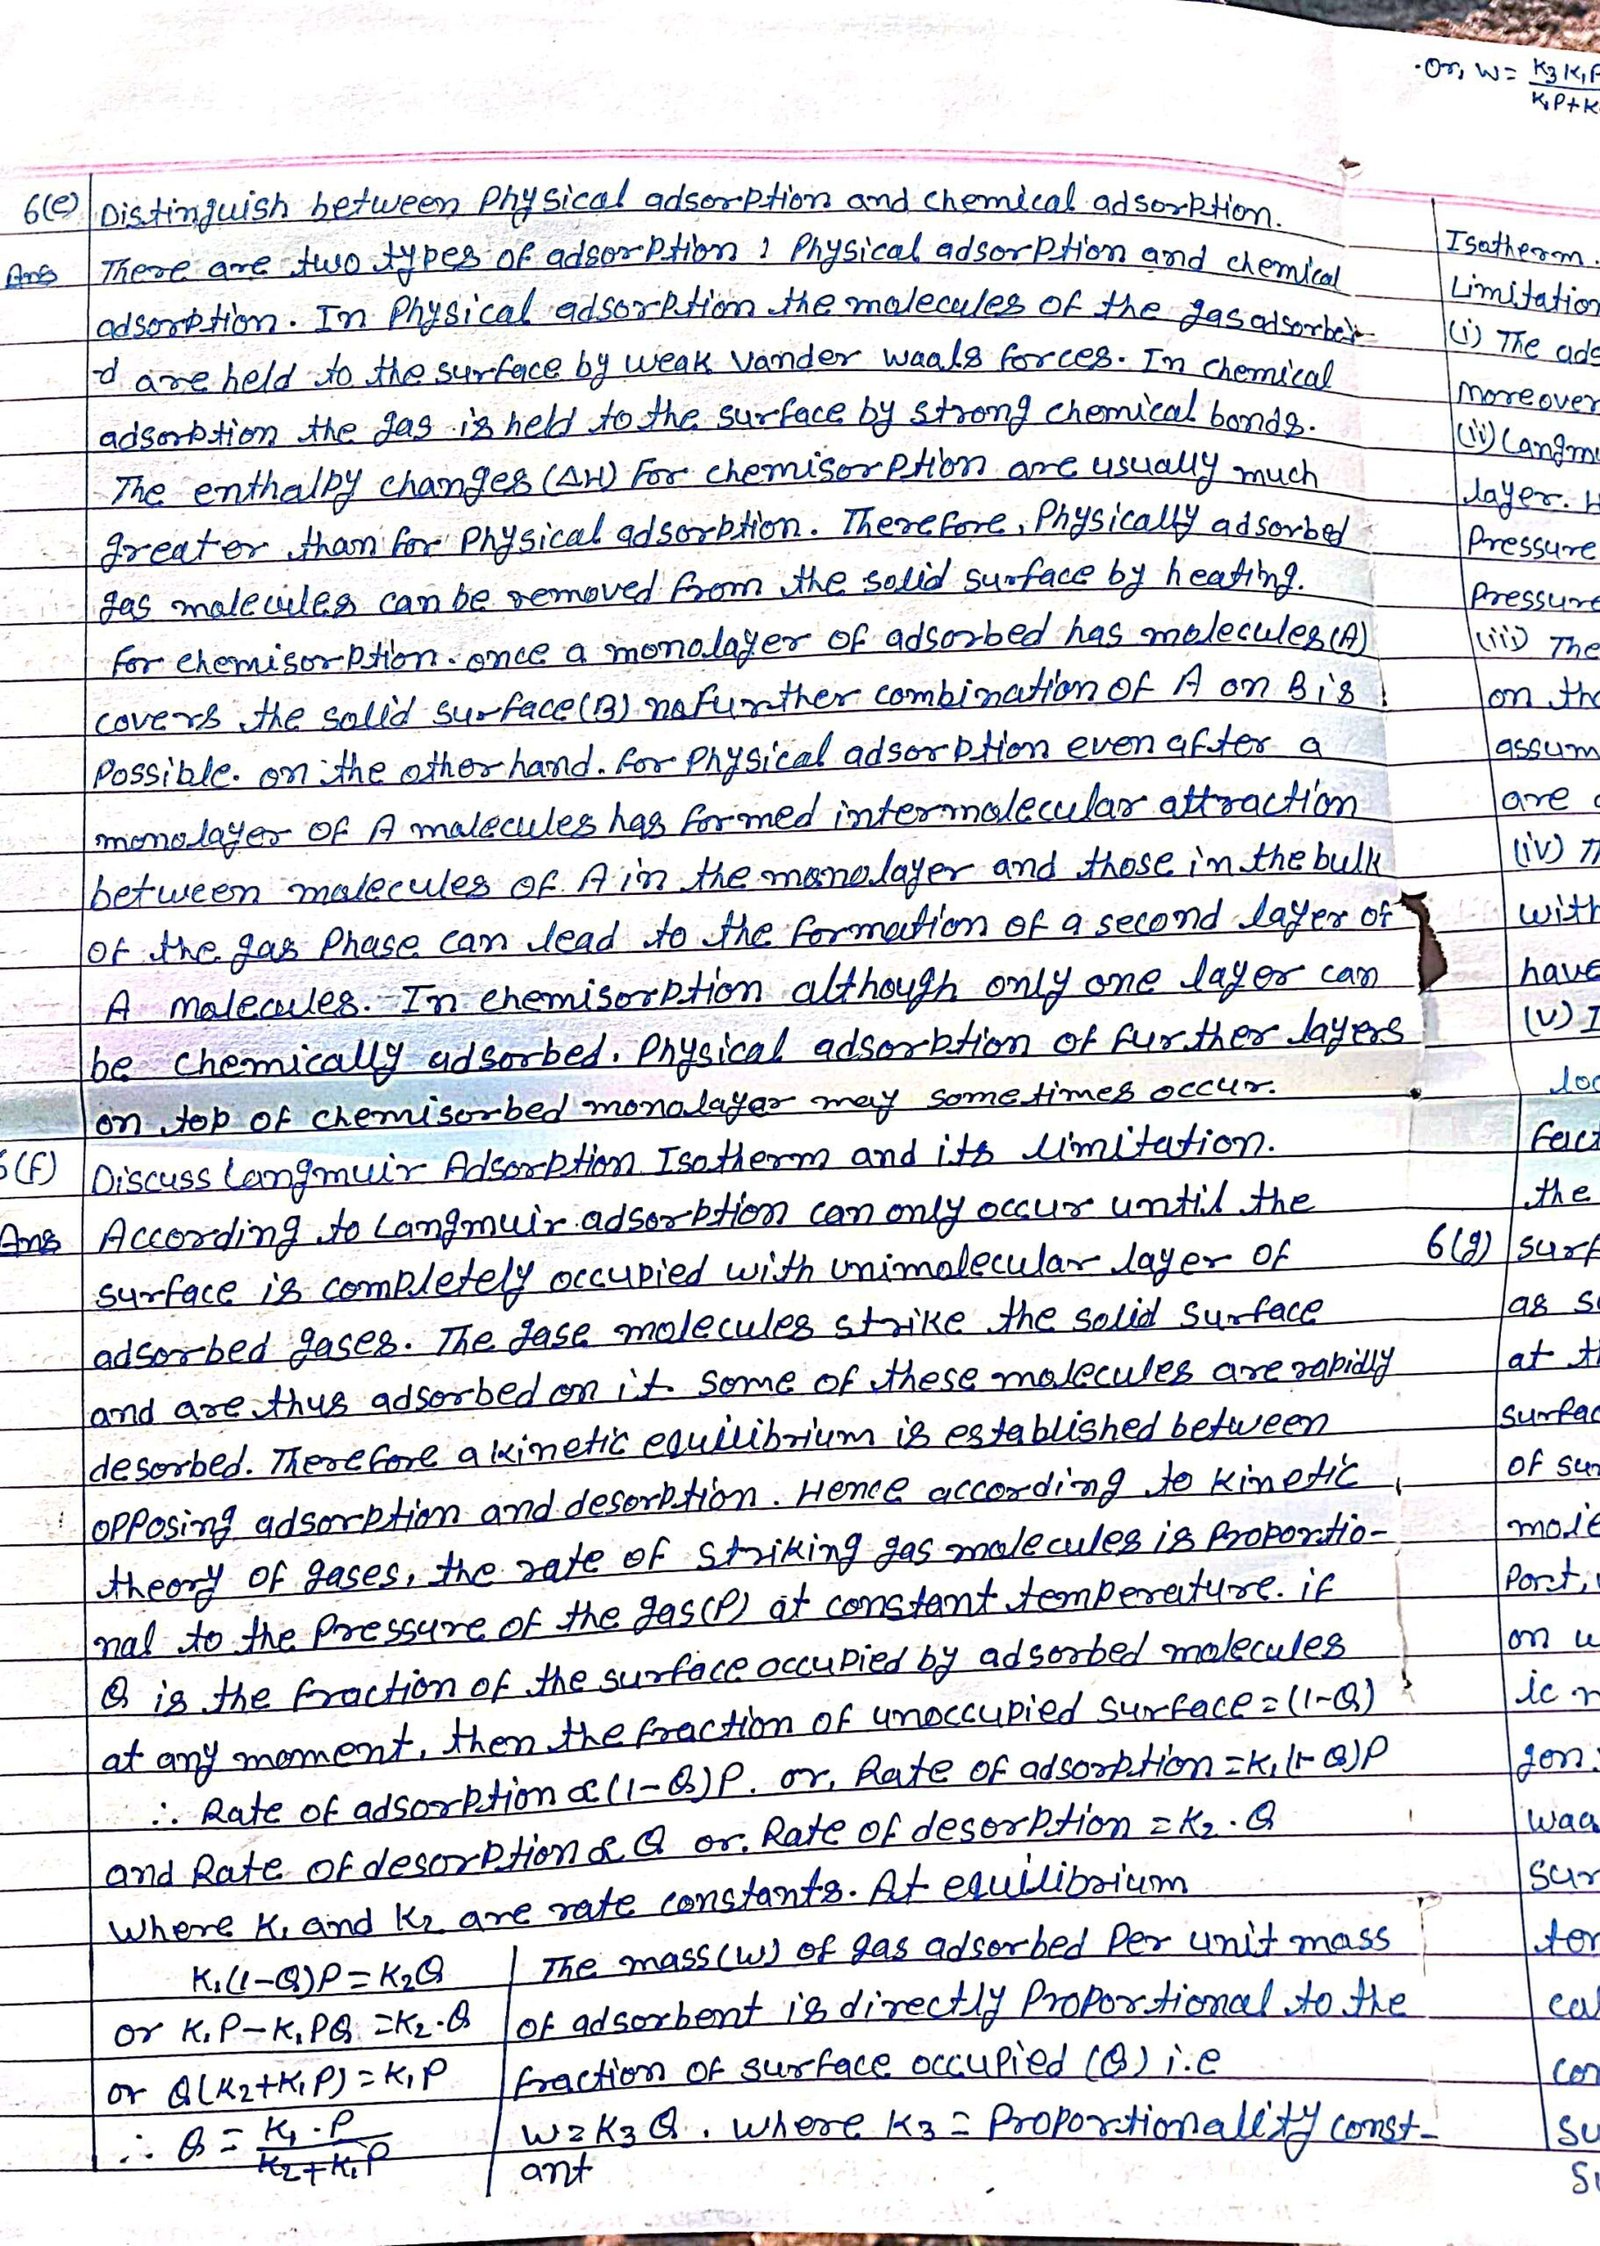 6(e) Distinguish between Physical adsorption and chemical adsorption.
Ans There are two types of adsorption : Physical adsorption and chemical
adsorption. In Physical adsorption the molecules of the gas adsorbe-
d are held to the surface by weak Vander waals forces. In chemical
adsorbtion the gas is held to the surface by strong chemical bonds.
The enthalpy changes (ΔH) for chemisorption are usually much
greater than for Physical adsorbtion. Therefore, Physically adsorbed
gas molecules can be removed from the solid surface by heating.
For chemisorption. once a monolayer of adsorbed has molecules (A)
covers the solid surface (B) no further combination of A on B is
Possible. on the other hand. for Physical adsorbtion even after a
monolayer of A molecules has formed intermolecular attraction
between molecules of A in the monolayer and those in the bulk
of the gas Phase can lead to the formation of a second layer of
A molecules. In chemisorbtion although only one layer can
be chemically adsorbed. Physical adsorbtion of further layers
on top of chemisorbed monolayer may sometimes occur.
6(f) Discuss Langmuir Adsorbtion Isotherm and its limitation.
Ans According to Langmuir adsorbtion can only occur until the
surface is completely occupied with unimolecular layer of
adsorbed gases. The gase molecules strike the solid surface
and are thus adsorbed on it. Some of these molecules are rapidly
desorbed. Therefore a kinetic equilibrium is established between
opposing adsorption and desorption. Hence according to kinetic
theory of gases, the rate of striking gas molecules is Proportio-
nal to the Pressure of the gas (P) at constant temperature. if
θ is the fraction of the surface occupied by adsorbed molecules
at any moment, then the fraction of unoccupied surface = (1-θ)
∴ Rate of adsorption ∝ (1-θ)P. or, Rate of adsorption = K₁(1-θ)P
and Rate of desorption ∝ θ or. Rate of desorption = K₂.θ
Where K₁ and K₂ are rate constants. At equilibrium
K₁(1-θ)P = K₂θ
or K₁P - K₁Pθ = K₂.θ
or θ(K₂+K₁P) = K₁P
∴ θ = K₁.P / K₂+K₁P
The mass (w) of gas adsorbed Per unit mass
of adsorbent is directly Proportional to the
fraction of surface occupied (θ) i.e
w = K₃θ. where K₃ = Proportionality const-
ant
Or, w = K₃K₁P
K₁P+K
Isotherm.
Limitation
(i) The ads
Moreover
(ii) Langmu
layer. H
Pressure
Pressure
(iii) The
on the
assum
are
(iv) Th
with
have
(v) I
loc
fact
the
6(g) surf
as s
at th
surfac
of sur
mole
Port,
on u
ic n
gon.
waa
sur
ter
cal
con
su